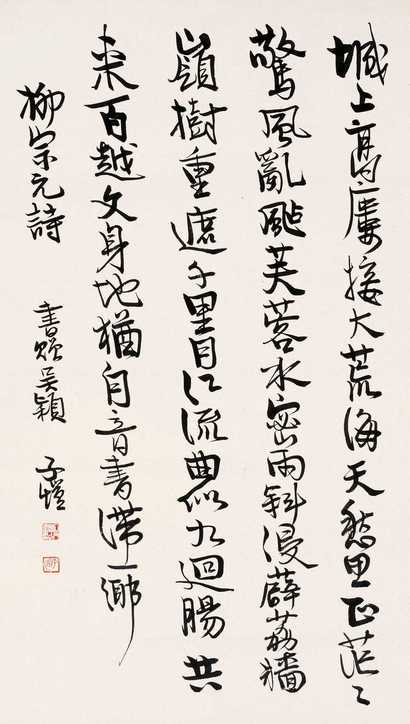 城上高廔接大荒海天愁思正茫〻
驚風亂颭芙蓉水密雨斜侵薜荔牆
嶺樹重遮千里目江流曲似九迴腸共
來百越文身地猶自音書滯一鄉
柳宗元詩
書贈吴穎 子愷